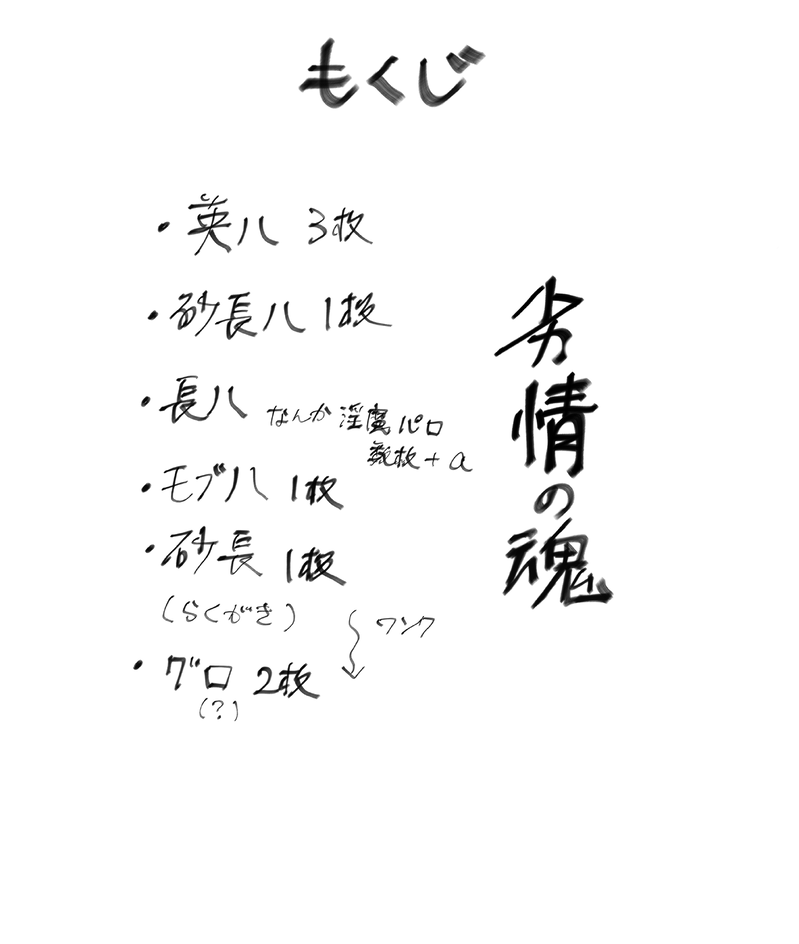 もくじ
・英ハ 3枚
・砂長ハ 1枚
・長ハ なんか淫魔パロ
数枚+α
・モブハ 1枚
・砂長 1枚
(らくがき)
ワンク
・グロ 2枚
(?)
劣情の魂